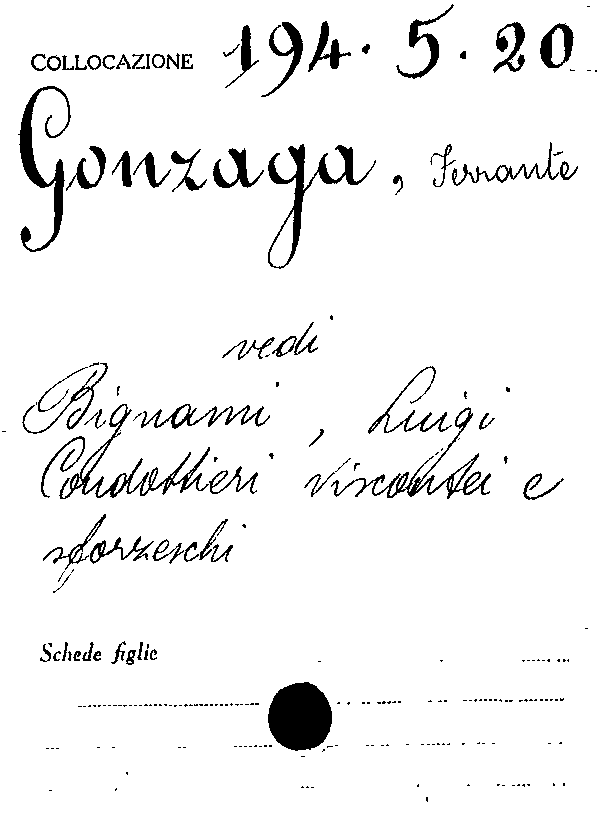 COLLOCAZIONE 194.5.20
Gonzaga, Ferrante
vedi
Bignami, Luigi
Condottieri viscontei e
sforzeschi
Schede figlie